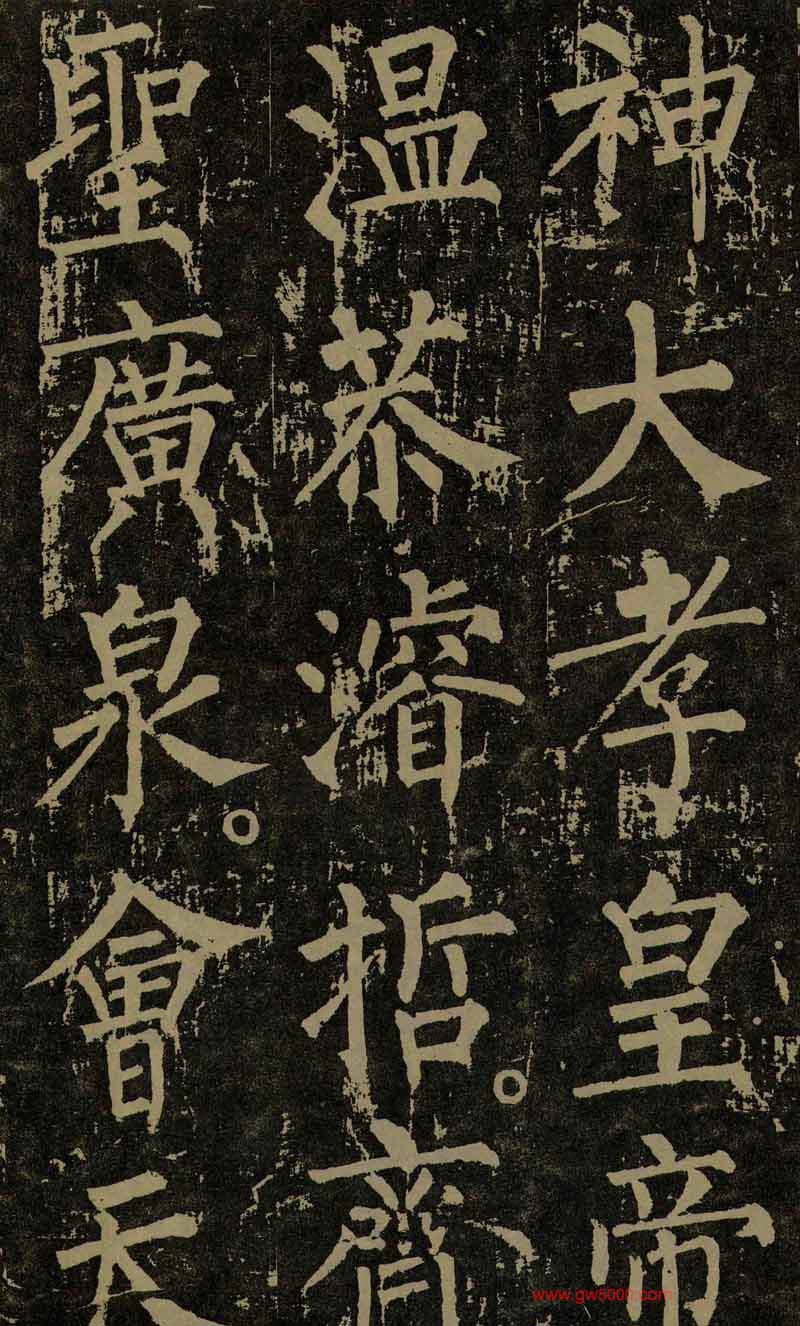 神大孝皇帝
温恭濬哲。齊
聖廣泉。會天
www.gw5000.com